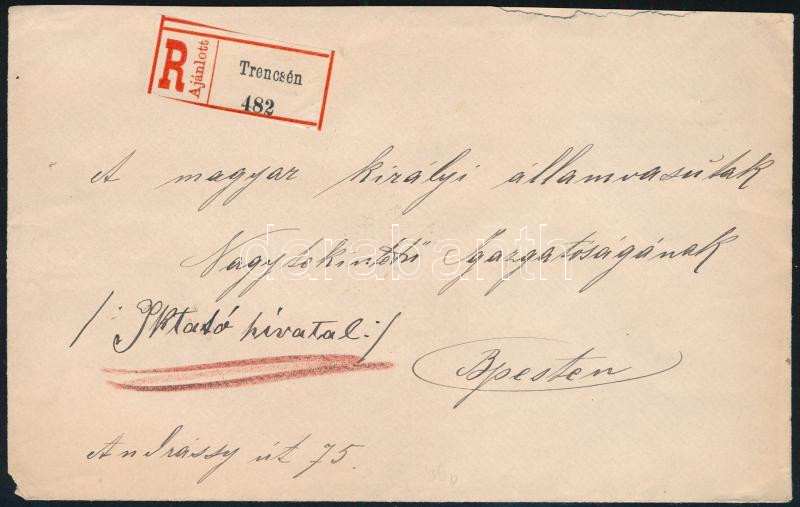 R Ajánlott
Trencsén
482
A magyar királyi államvasútak
Nagytekintetű Igazgatóságának
/: Iktató hivatal :/
Bpesten
Andrássy út 75.
darabanth